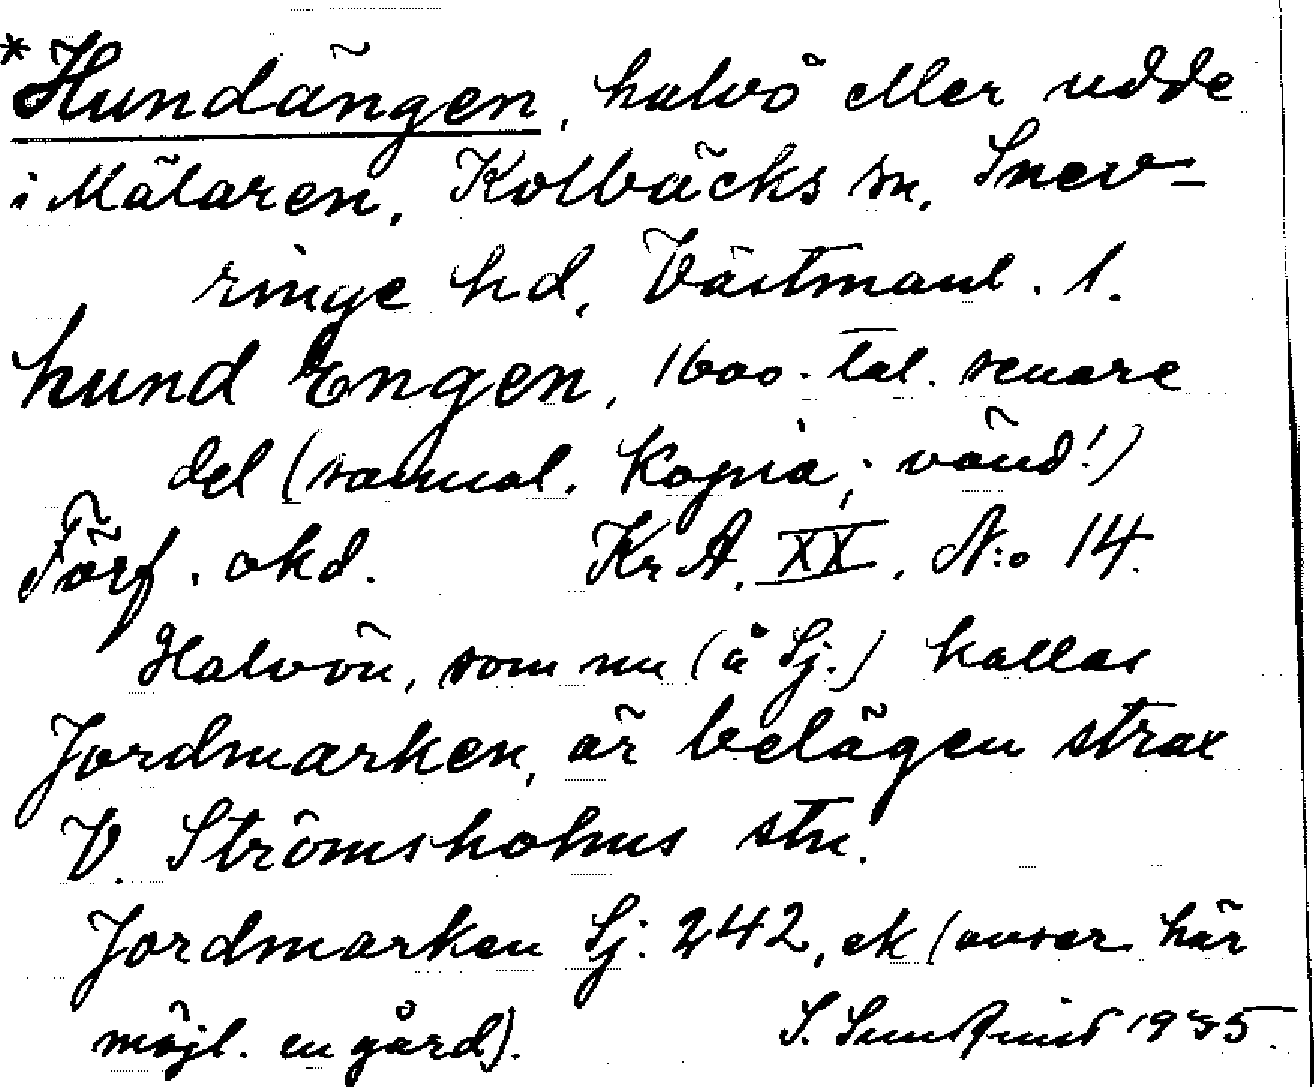 *Hundängen, halvö eller udde
i Mälaren, Kolbäcks sn, Snev-
ringe hd, Västmanl. l.
hund Engen, 1600-tal. senare
del (sammal. Kopia; vänd!)
Förf. okd. KrA, XX, N:o 14.
Halvön, som nu (å Sj.) kallas
Jordmarken, är belägen strax
V. Strömsholms stn.
Jordmarken Sj. 242, ek (avser här
möjl. en gård). S.